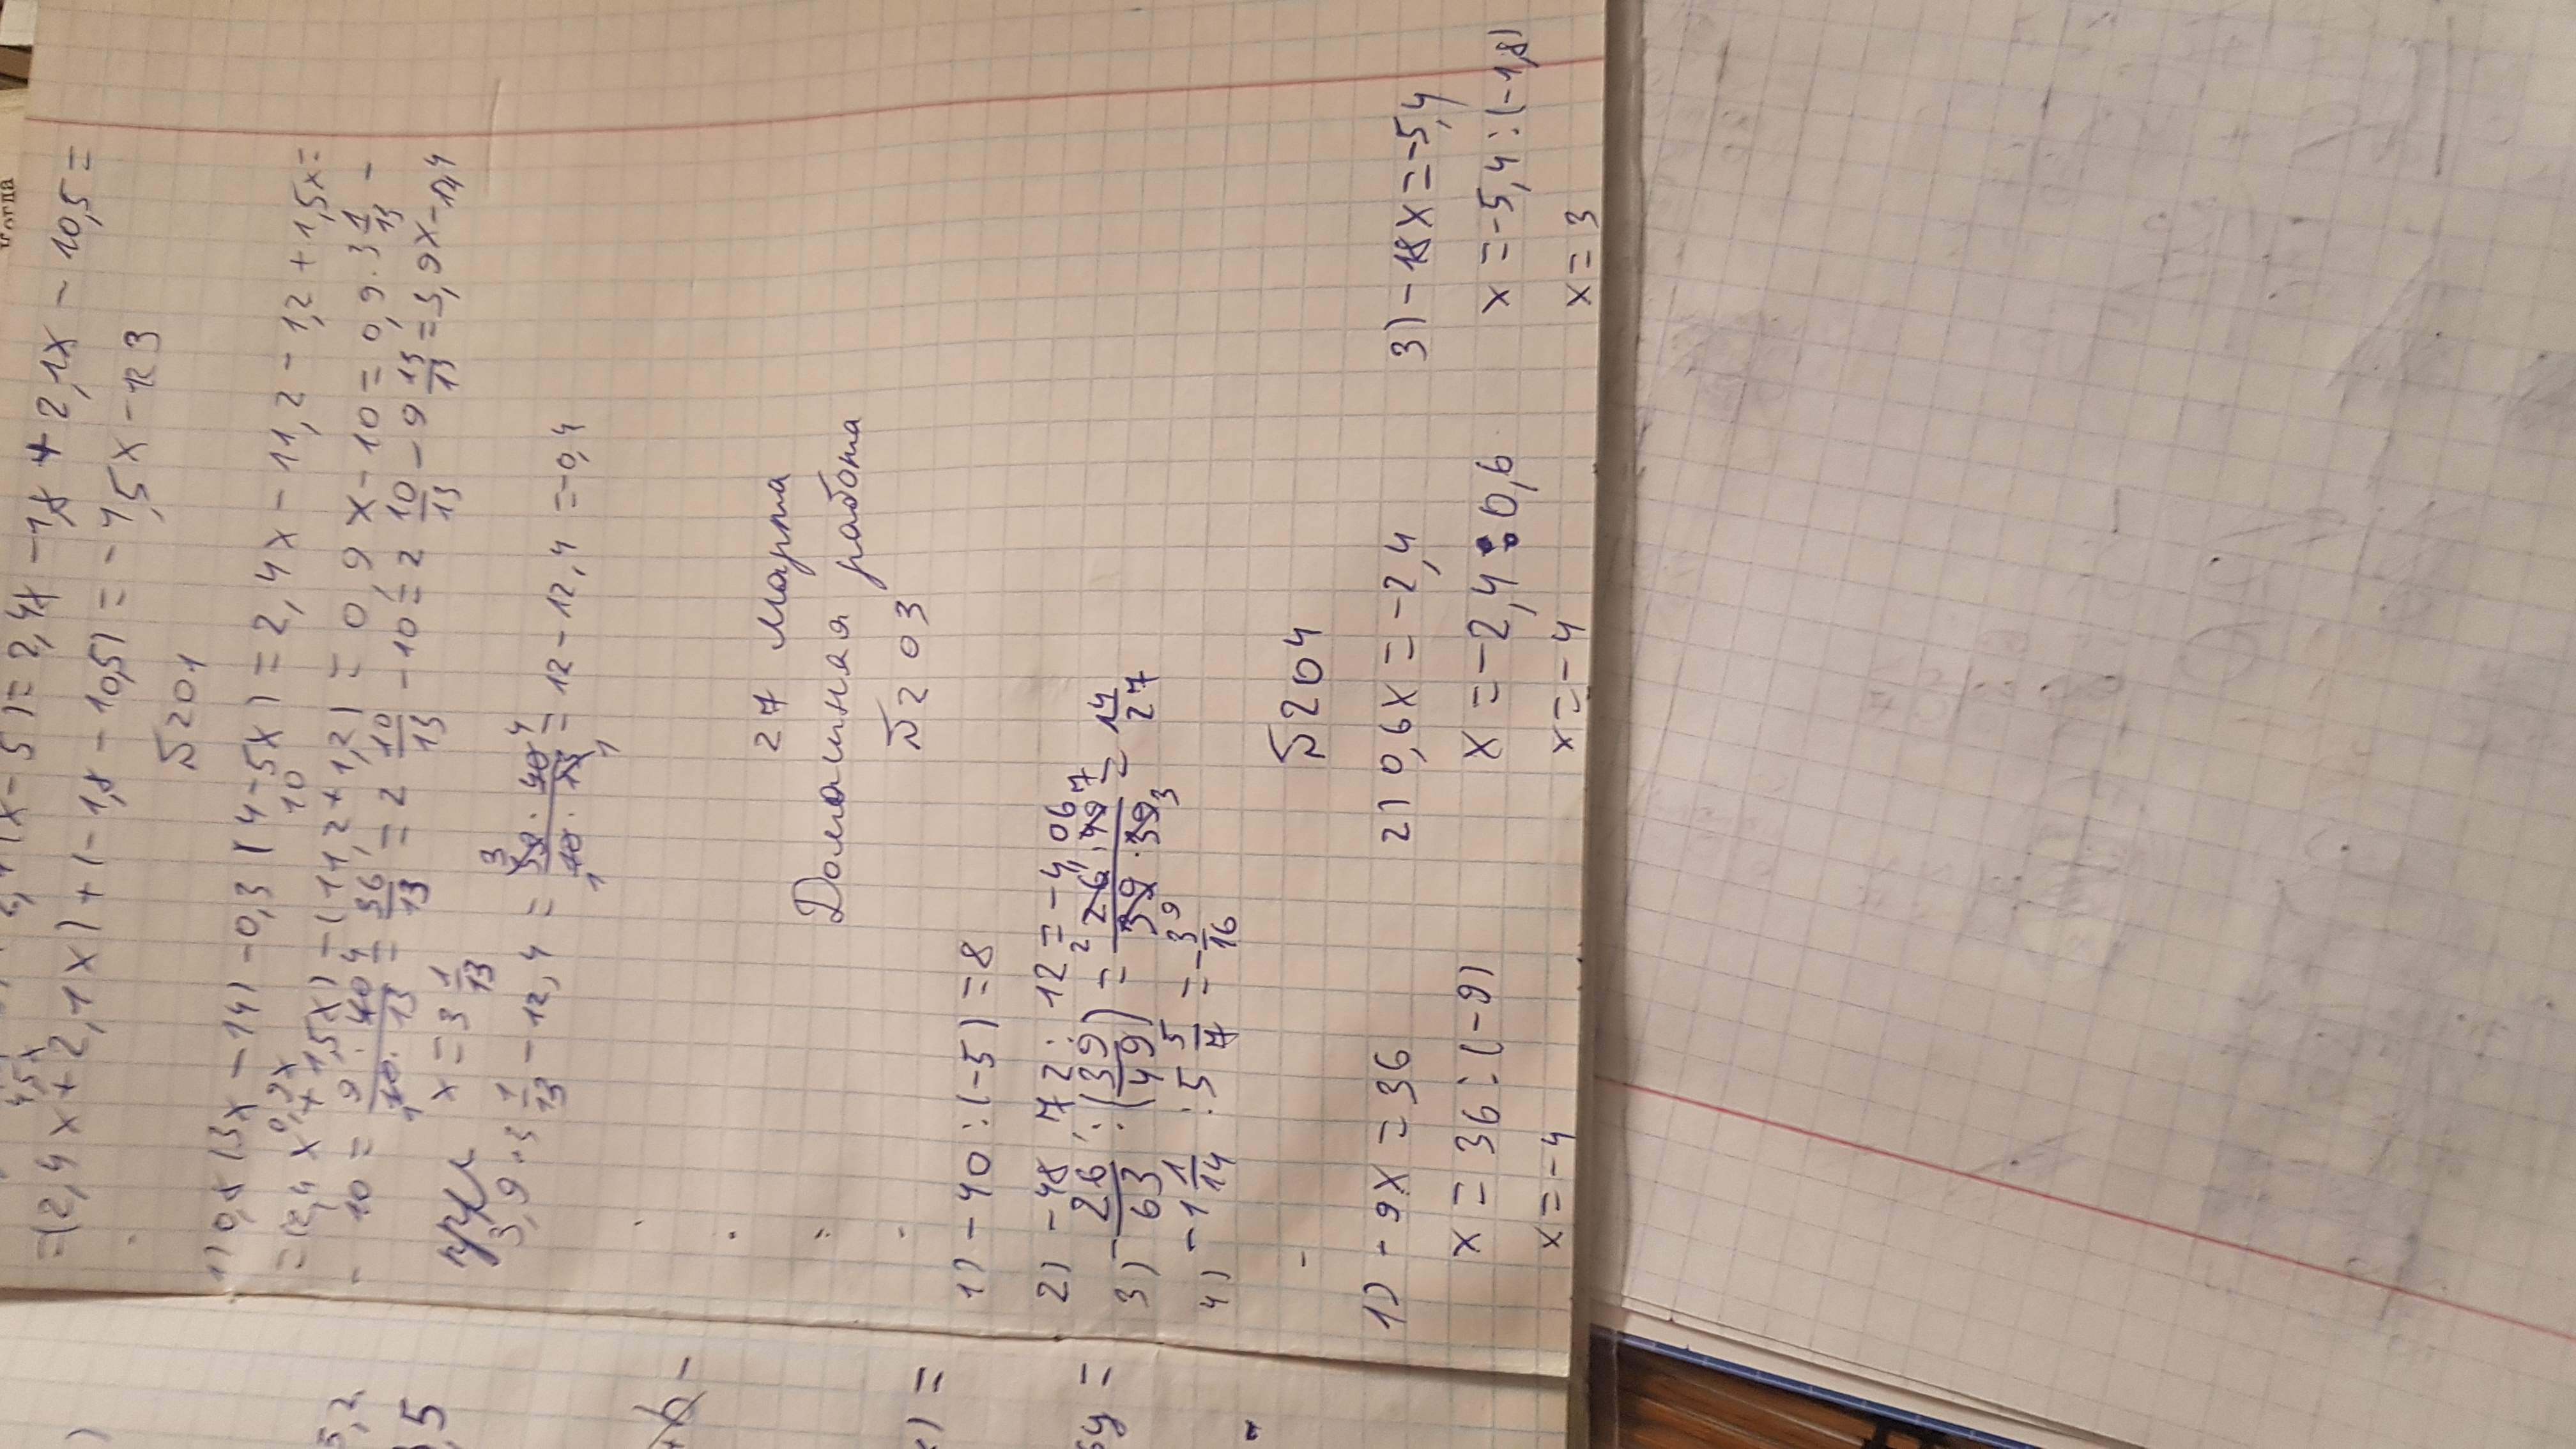 = 2,4x - 1,8 + 2,1x - 10,5 =
=(2,4x + 2,1x) + (-1,8 - 10,5) = 4,5x - 12,3
№201
1) 0,8(3x - 14) - 0,3(4 - 5x) = 2,4x - 11,2 - 1,2 + 1,5x =
= (2,4x + 1,5x) - (11,2 + 1,2) = 0,9x - 10 = 0,9 · 3 1/13 -
- 10 = 9 · 40 / 10 · 13 = 36/13 = 2 10/13 - 10 = 2 10/13 - 9 13/13 = 3,9x - 12,4
x = 3 1/13
3,9 · 3 1/13 - 12,4 = 39 · 40 / 10 · 13 = 12 - 12,4 = -0,4
27 Марта
Домашняя работа
№203
1) -40 : (-5) = 8
2) -48,72 : 12 = -4,06
3) -26/63 : (39/49) = - 26 · 49 / 39 · 39 = 14/27
4) -1 1/14 : 5 5/7 = - 3/16
№204
1) -9x = 36
x = 36 : (-9)
x = -4
2) 0,6x = -2,4
x = -2,4 : 0,6
x = -4
3) -18x = -5,4
x = -5,4 : (-1,8)
x = 3